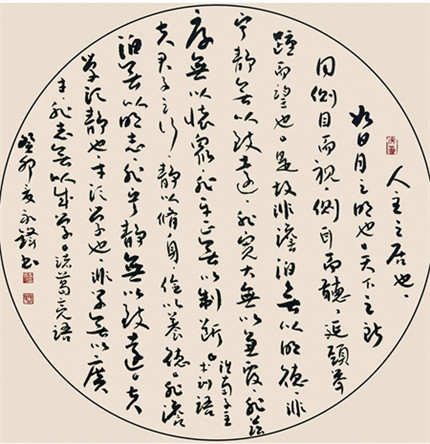 人主之居也、
如日月之明也。天下之所
同側目而視、側耳而聽、延頸舉
踵而望也。是故非澹泊無以明德、非
寧靜無以致遠、非寬大無以兼覆、非慈
厚無以懷眾、非平正無以制斷。淮南子主
術訓語
夫君子之行、靜以脩身、儉以養德。非澹
泊無以明志、非寧靜無以致遠。夫
學須靜也、才須學也、非學無以廣
才、非志無以成學。諸葛亮語
癸卯夏永鋒書